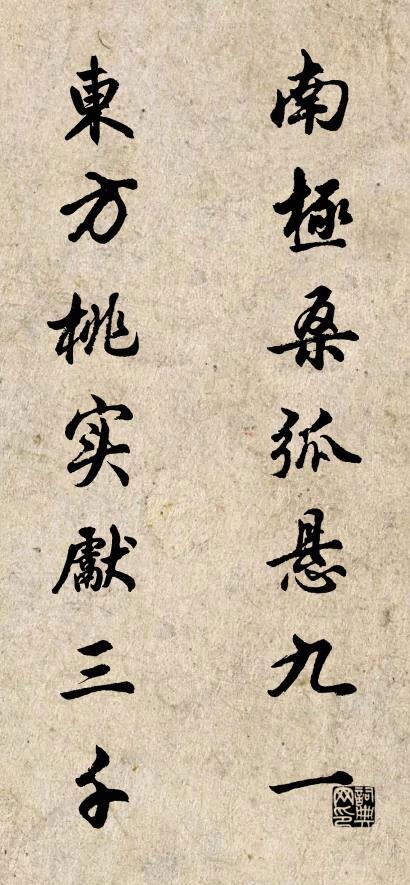 南極桑弧悬九一
東方桃实獻三千
詞典网印